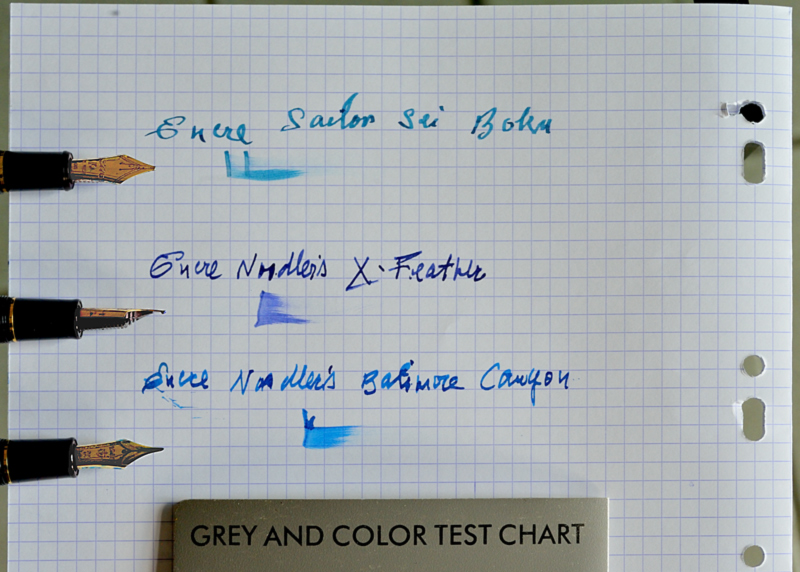 Encre Sailor Sei Boku
Encre Noodler's X-Feather
Encre Noodler's Baltimore Canyon
GREY AND COLOR TEST CHART